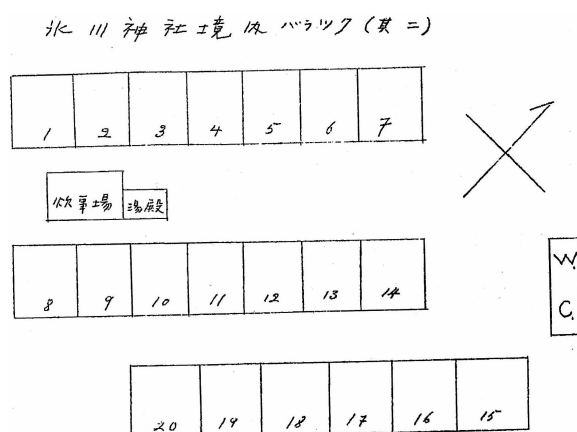 氷川神社境内バラック(其二)
1 2 3 4 5 6 7
炊事場 湯殿
8 9 10 11 12 13 14
W.
C.
20 19 18 17 16 15